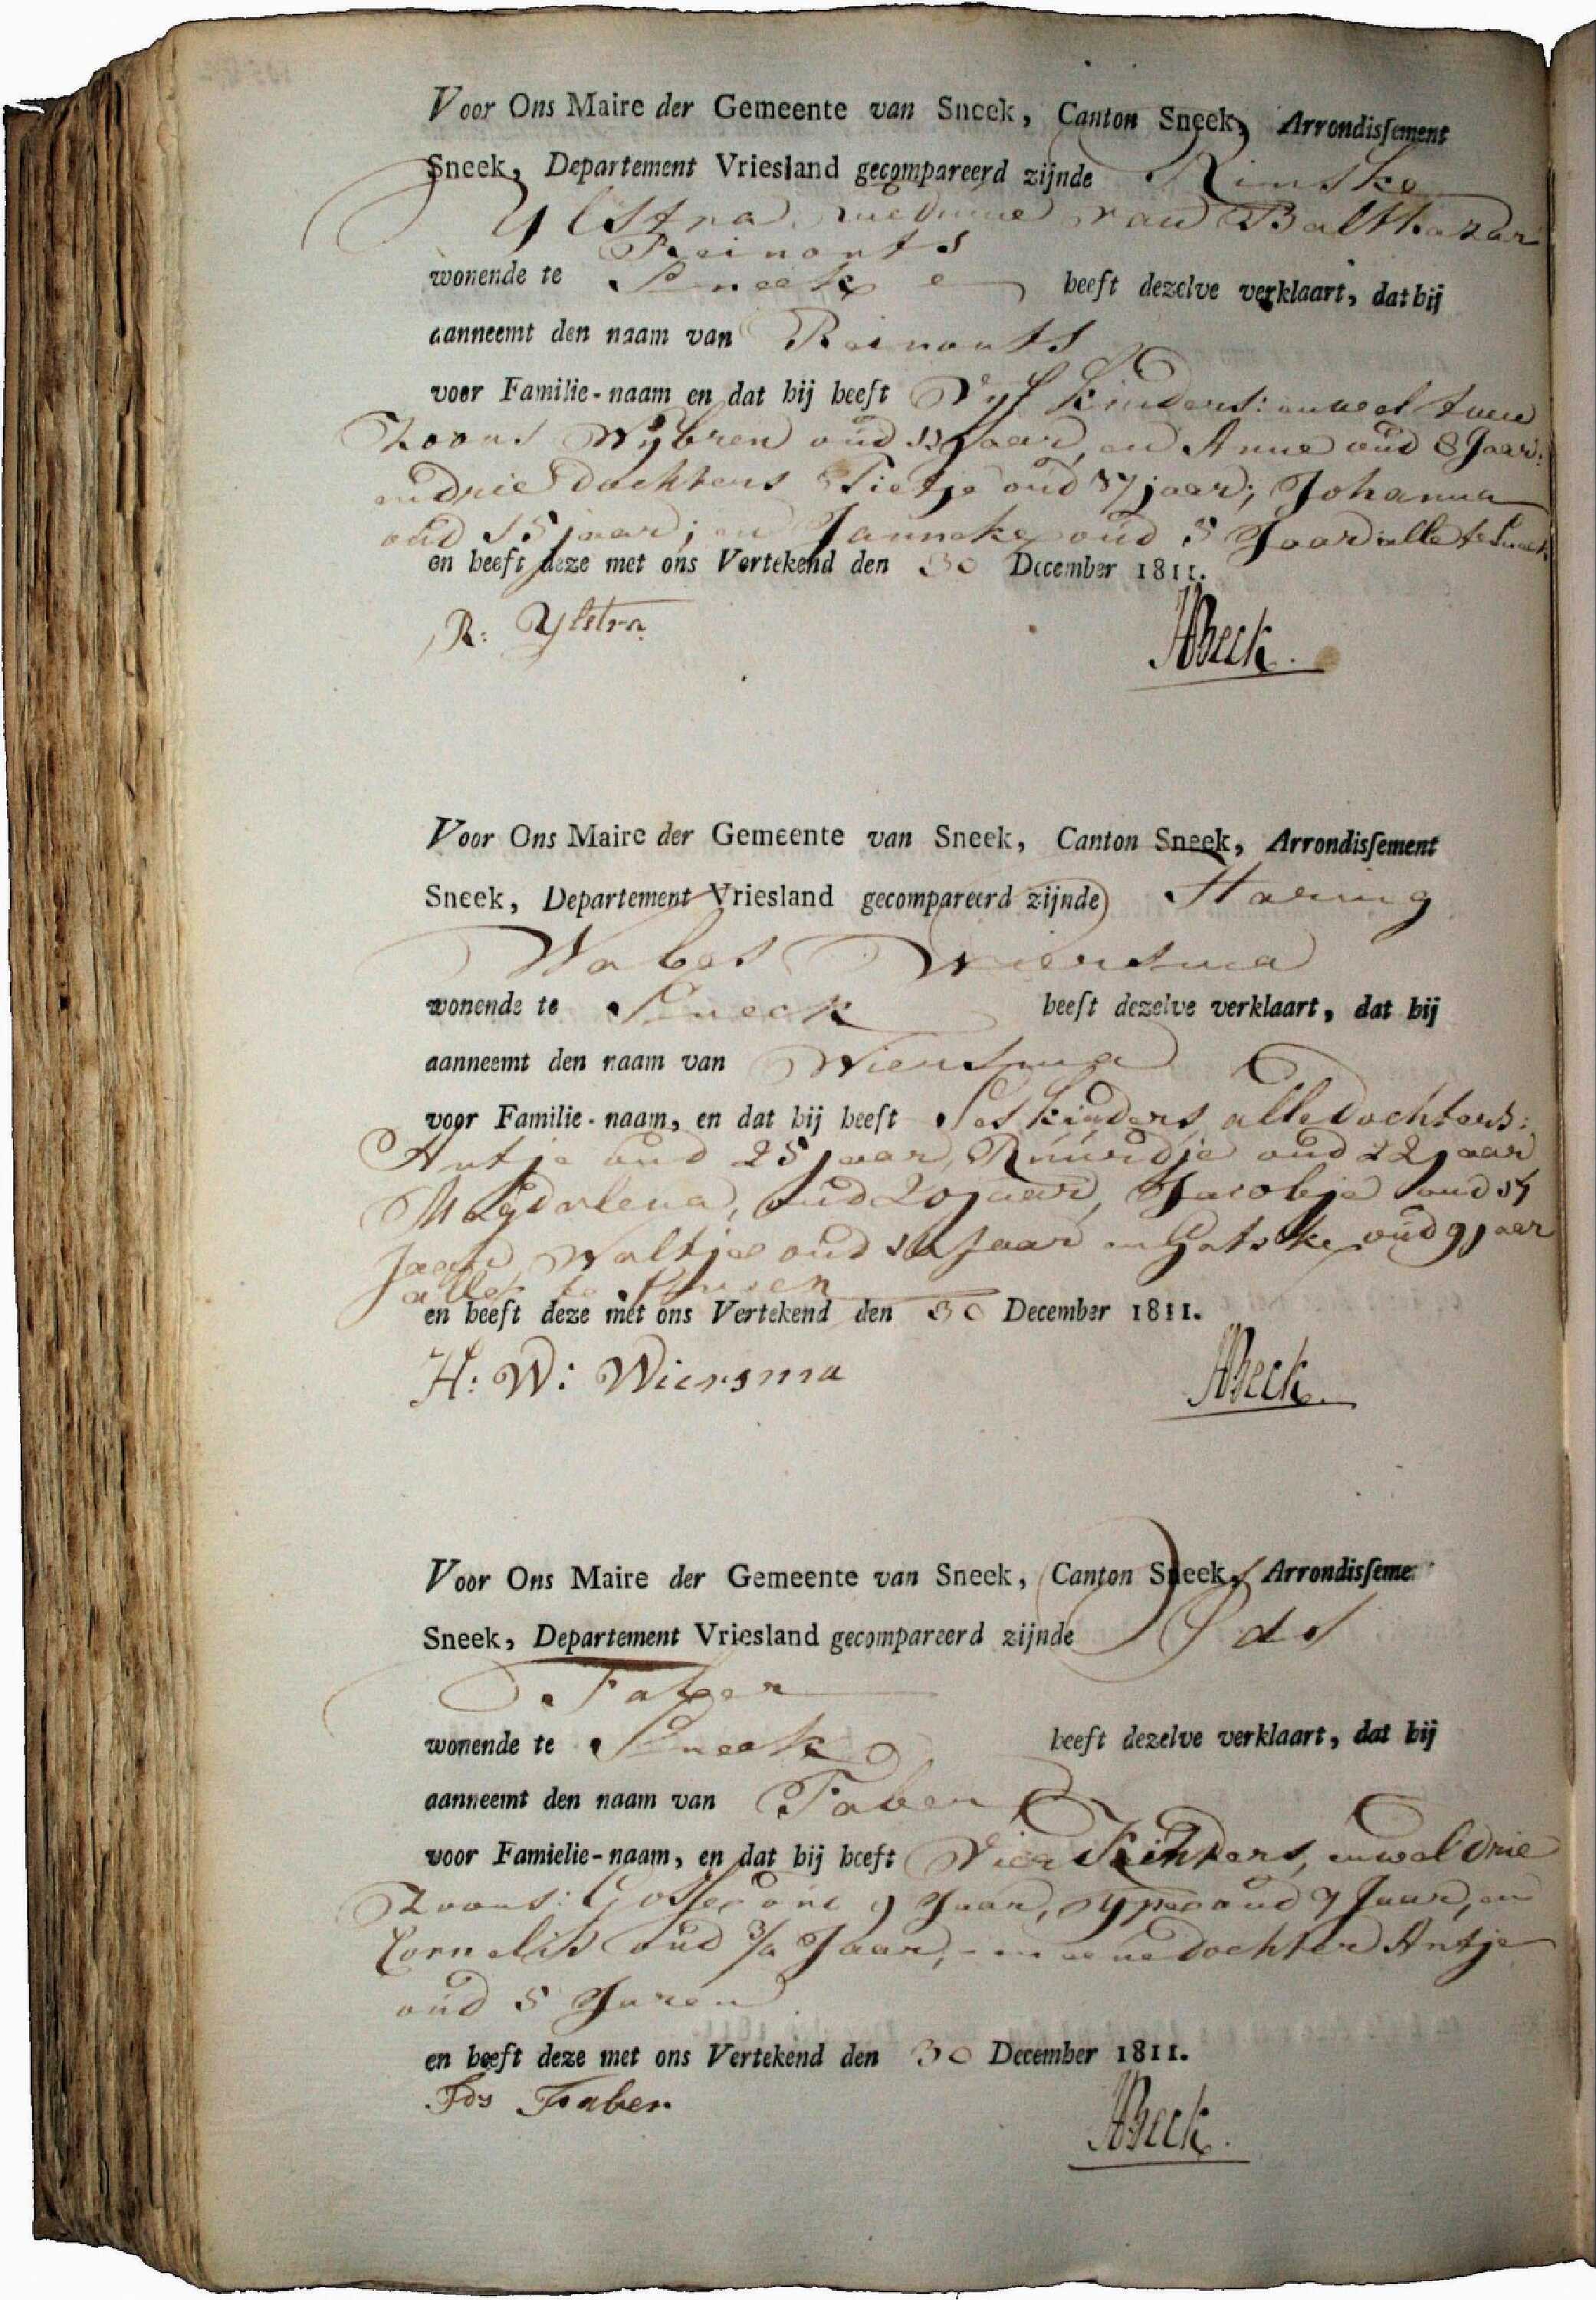 Voor Ons Maire der Gemeente van Sneek, Canton Sneek, Arrondisſement
Sneek, Departement Vriesland gecompareerd zijnde Rinske
Ylstra weduwe van Balthazar
Reinouts
wonende te Sneek heeft dezelve verklaart, dat hij
aanneemt den naam van Reinouts
voor Familie-naam en dat hij heeft Vijf kinders: en wel twee
Zoons Wybren oud jaar, en Anne oud 8 Jaar:
en drie dochters Tietje oud 17 jaar; Johanna
oud 15 jaar; en Janneke oud 5 Jaar alle te Sneek
en heeft deze met ons Vertekend den 30 December 1811.
R: Ylstra
Voor Ons Maire der Gemeente van Sneek, Canton Sneek, Arrondisſement
Sneek, Departement Vriesland gecompareerd zijnde Haring
Wabes Wiersma
wonende te Sneek heeft dezelve verklaart, dat hij
aanneemt den naam van Wiersma
voor Familie-naam, en dat hij heeft Ses kinders alle dochters:
Antje oud 25 jaar, Ruurdje oud 22 jaar
Magdalena, oud 20 jaar, Jacobje oud
Jaar, Waltje oud Jaar en oud 9 jaar
alle te
en heeft deze met ons Vertekend den 30 December 1811.
H: W: Wiersma
Voor Ons Maire der Gemeente van Sneek, Canton Sneek, Arrondisſeme
Sneek, Departement Vriesland gecompareerd zijnde Ids
Faber
wonende te Sneek heeft dezelve verklaart, dat hij
aanneemt den naam van Faber
voor Famielie-naam, en dat hij heeft Vier Kinders, en wel drie
Zoons: oud 9 Jaar, Ype oud 7 Jaar, en
Cornelis oud Jaar, - en eene dochter Antje
oud 5 Jaren
en heeft deze met ons Vertekend den 30 December 1811.
Ids Faber